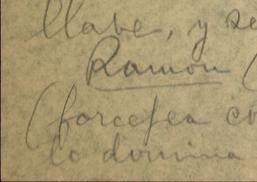 llave, y se
Ramón (
(forcejea co
lo domina